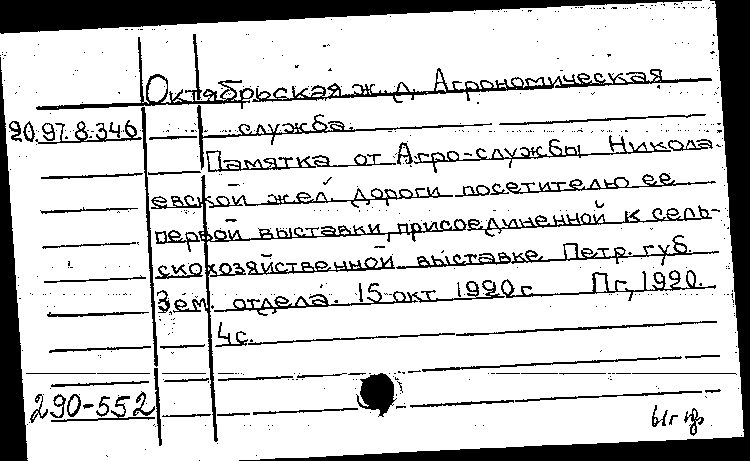 Октябрьская ж. д. Агрономическая
20.97.8.346 служба.
Памятка от Агро-службы Никола-
евской жел. дороги посетителю ее
первой выставки, присоединенной к сель-
скохозяйственной выставке Петр. губ.
Зем. отдела. 15 окт. 1920 г. Пг, 1920.
4 с.
290-552